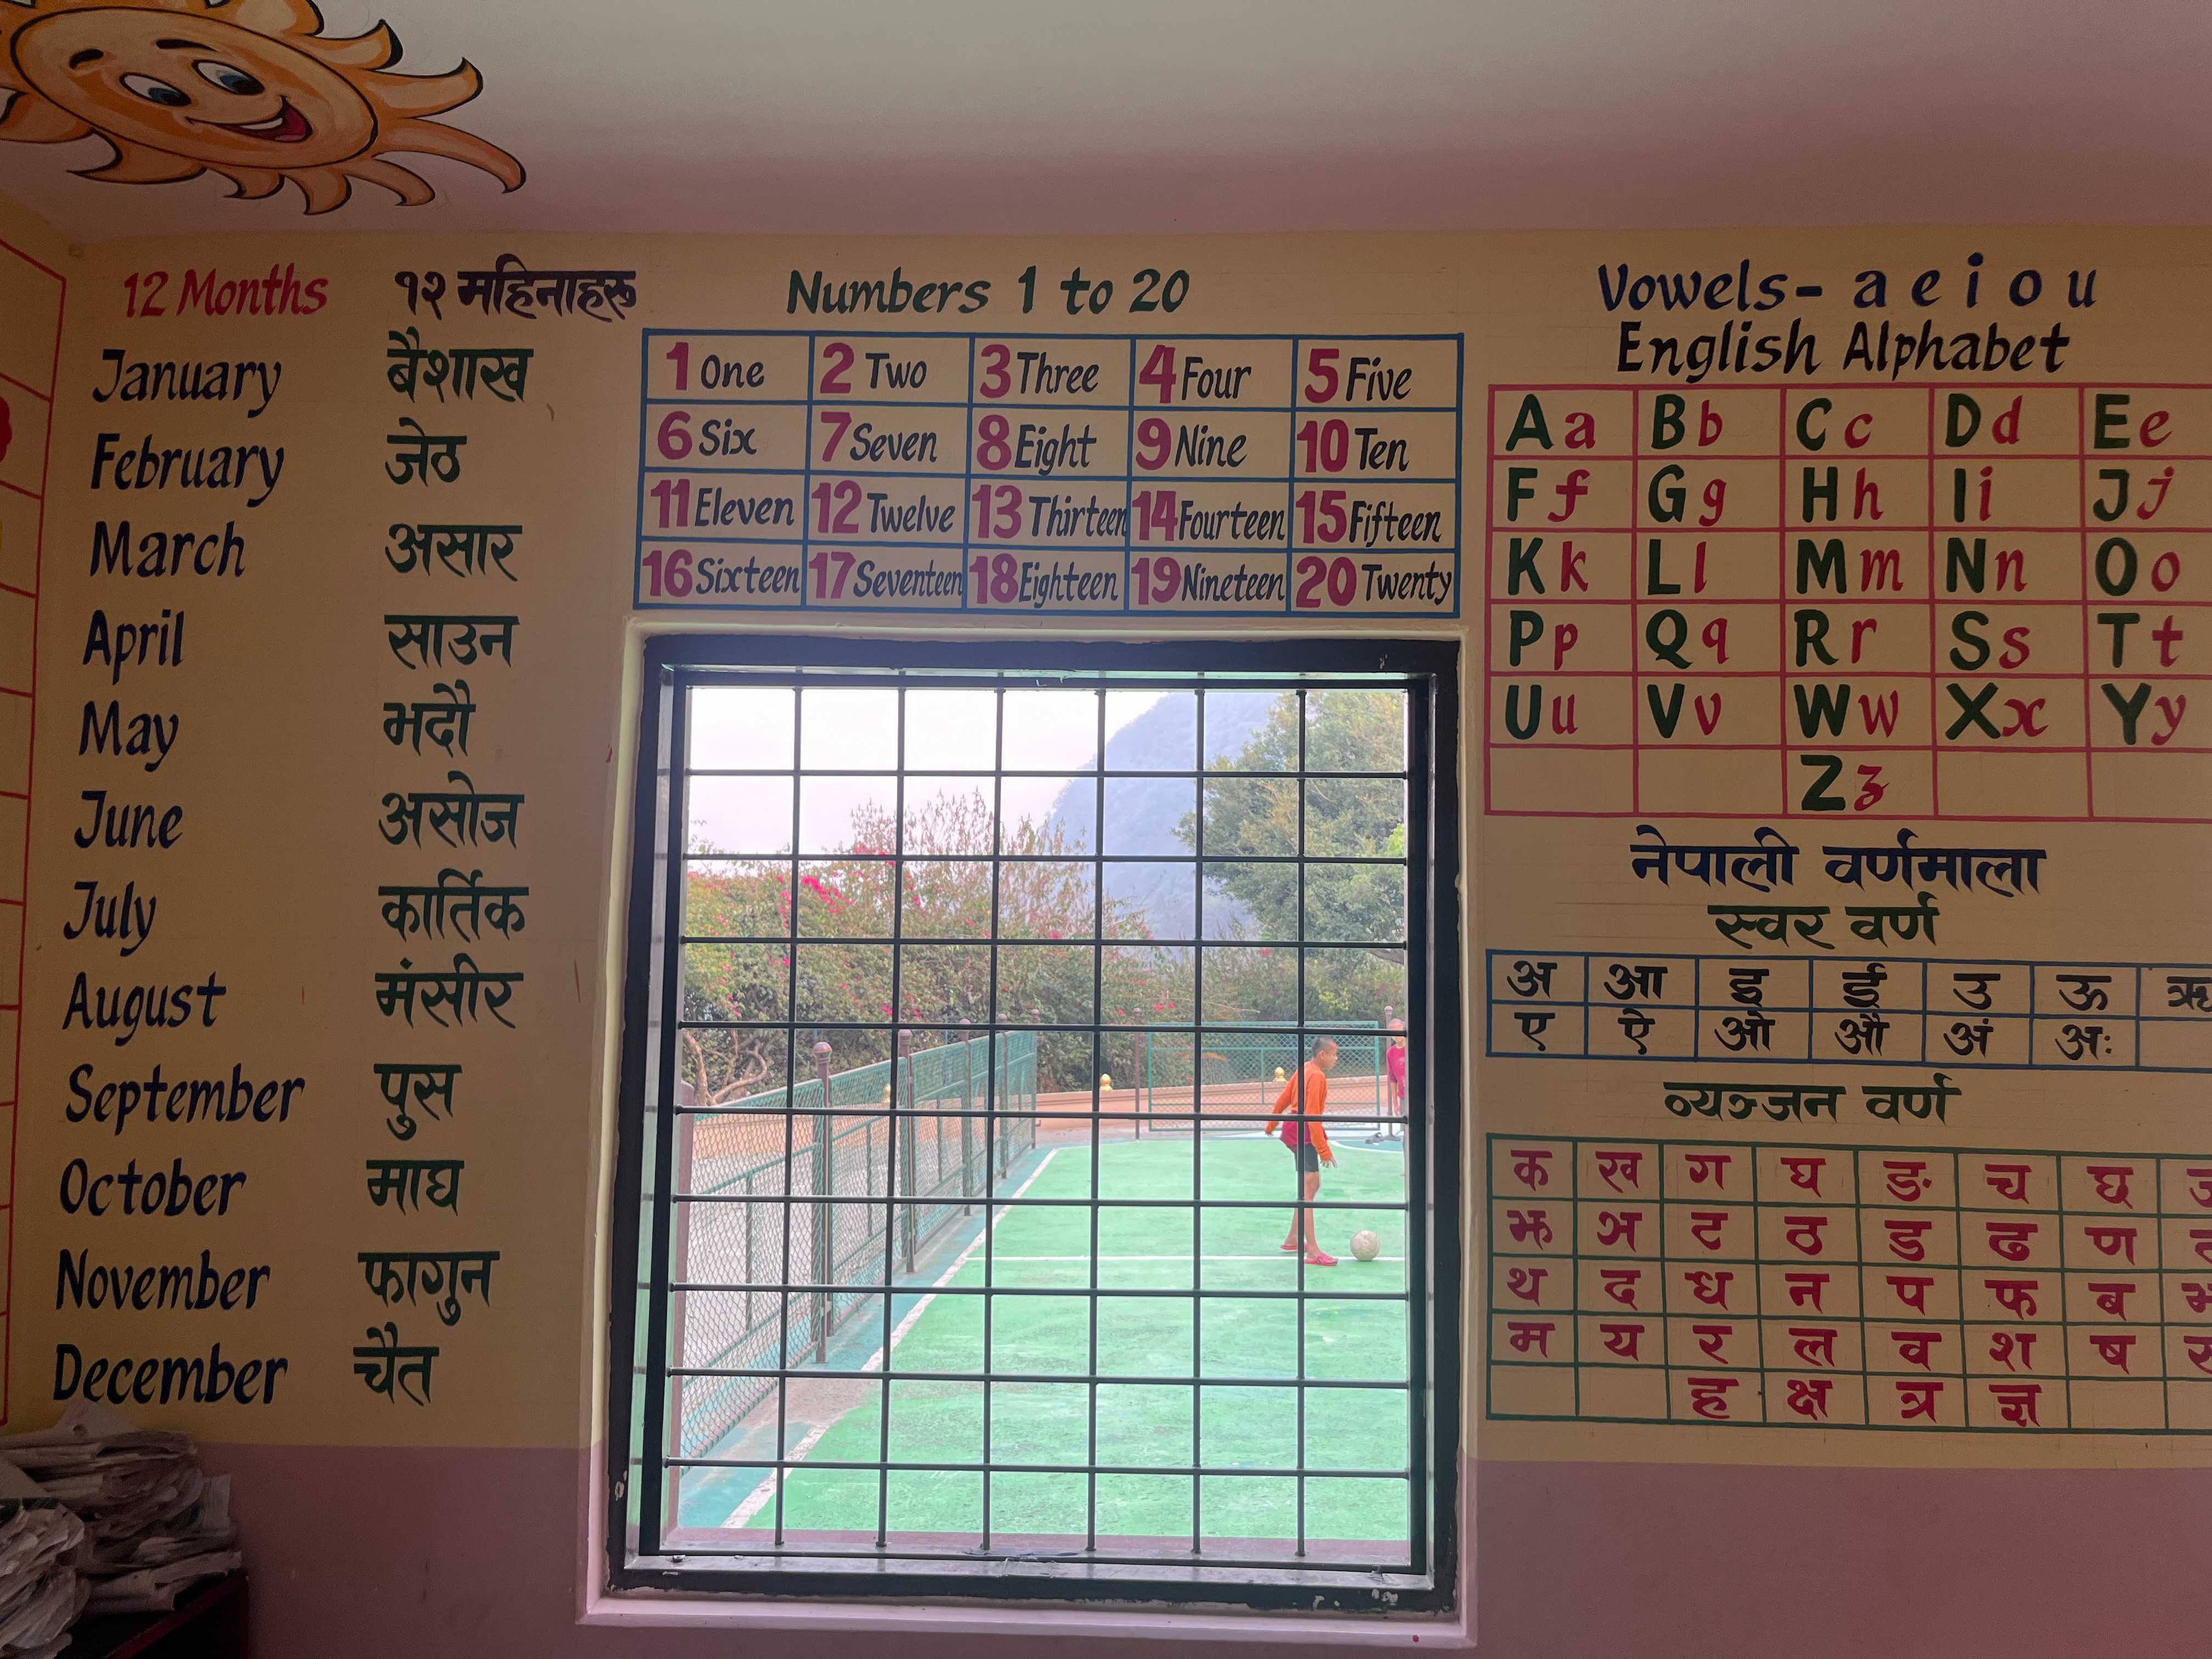 12 Months १२ महिनाहरू
January बैशाख
February जेठ
March असार
April साउन
May भदौ
June असोज
July कार्तिक
August मंसीर
September पुस
October माघ
November फागुन
December चैत
Numbers 1 to 20
1 One 2 Two 3 Three 4 Four 5 Five
6 Six 7 Seven 8 Eight 9 Nine 10 Ten
11 Eleven 12 Twelve 13 Thirteen 14 Fourteen 15 Fifteen
16 Sixteen 17 Seventeen 18 Eighteen 19 Nineteen 20 Twenty
Vowels- a e i o u
English Alphabet
A a B b C c D d E e
F f G g H h I i J j
K k L l M m N n O o
P p Q q R r S s T t
U u V v W w X x Y y
Z z
नेपाली वर्णमाला
स्वर वर्ण
अ आ इ ई उ ऊ ऋ
ए ऐ ओ औ अं अः
व्यञ्जन वर्ण
क ख ग घ ङ च छ
झ ञ ट ठ ड ढ ण
थ द ध न प फ ब
म य र ल व श ष
ह क्ष त्र ज्ञ